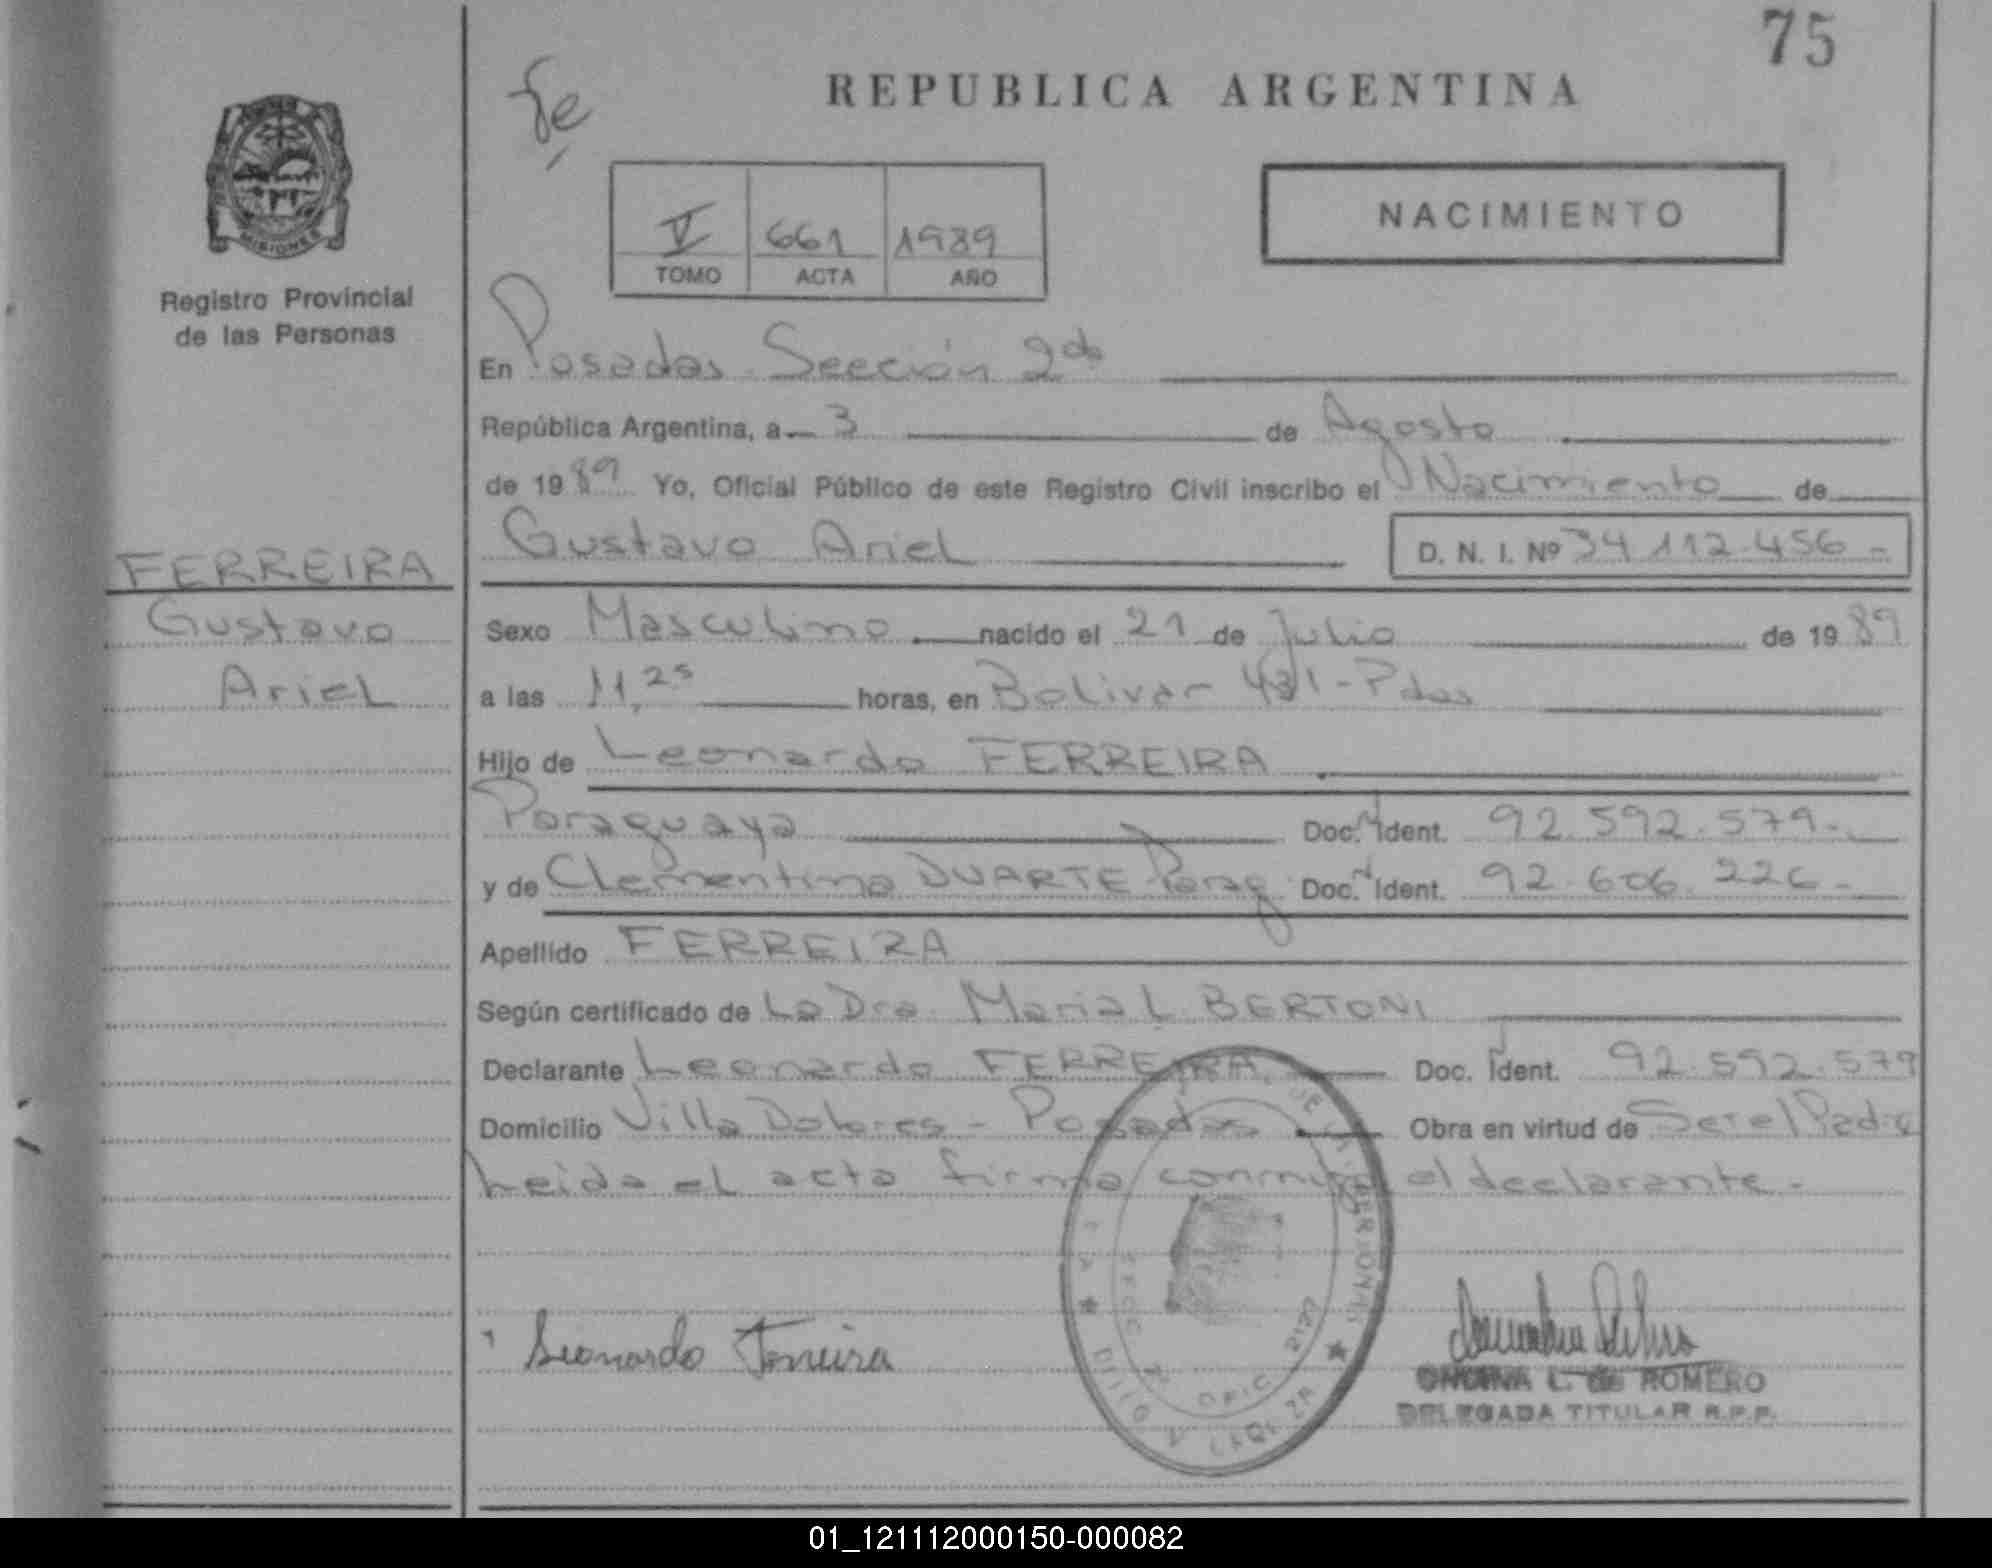 75
fe
REPUBLICA ARGENTINA
MISIONES
Registro Provincial
de las Personas
V 661 1989
TOMO ACTA AÑO
NACIMIENTO
En Posadas Sección 2da
República Argentina, a 3 de Agosto
de 1989 Yo, Oficial Público de este Registro Civil inscribo el Nacimiento de
Gustavo Ariel D. N. I. Nº 34.112.456-
FERREIRA
Gustavo
Ariel
Sexo Masculino nacido el 21 de Julio de 1989
a las 11,25 horas, en Bolivar - Pdas
Hijo de Leonardo FERREIRA
Paraguaya Doc. Ident. 92.592.579-
y de Clementina DUARTE Parag Doc. Ident. 92.606.226-
Apellido FERREIRA
Según certificado de La Dra. Maria L. BERTONI
Declarante Leonardo FERREIRA Doc. Ident. 92.592.579
Domicilio Villa Dolores - Posadas Obra en virtud de Ser el Padre
Leida el acta firma conmigo el declarante.-
Leonardo Ferreira
ONDINA L. de ROMERO
DELEGADA TITULAR R.P.P.
01_121112000150-000082